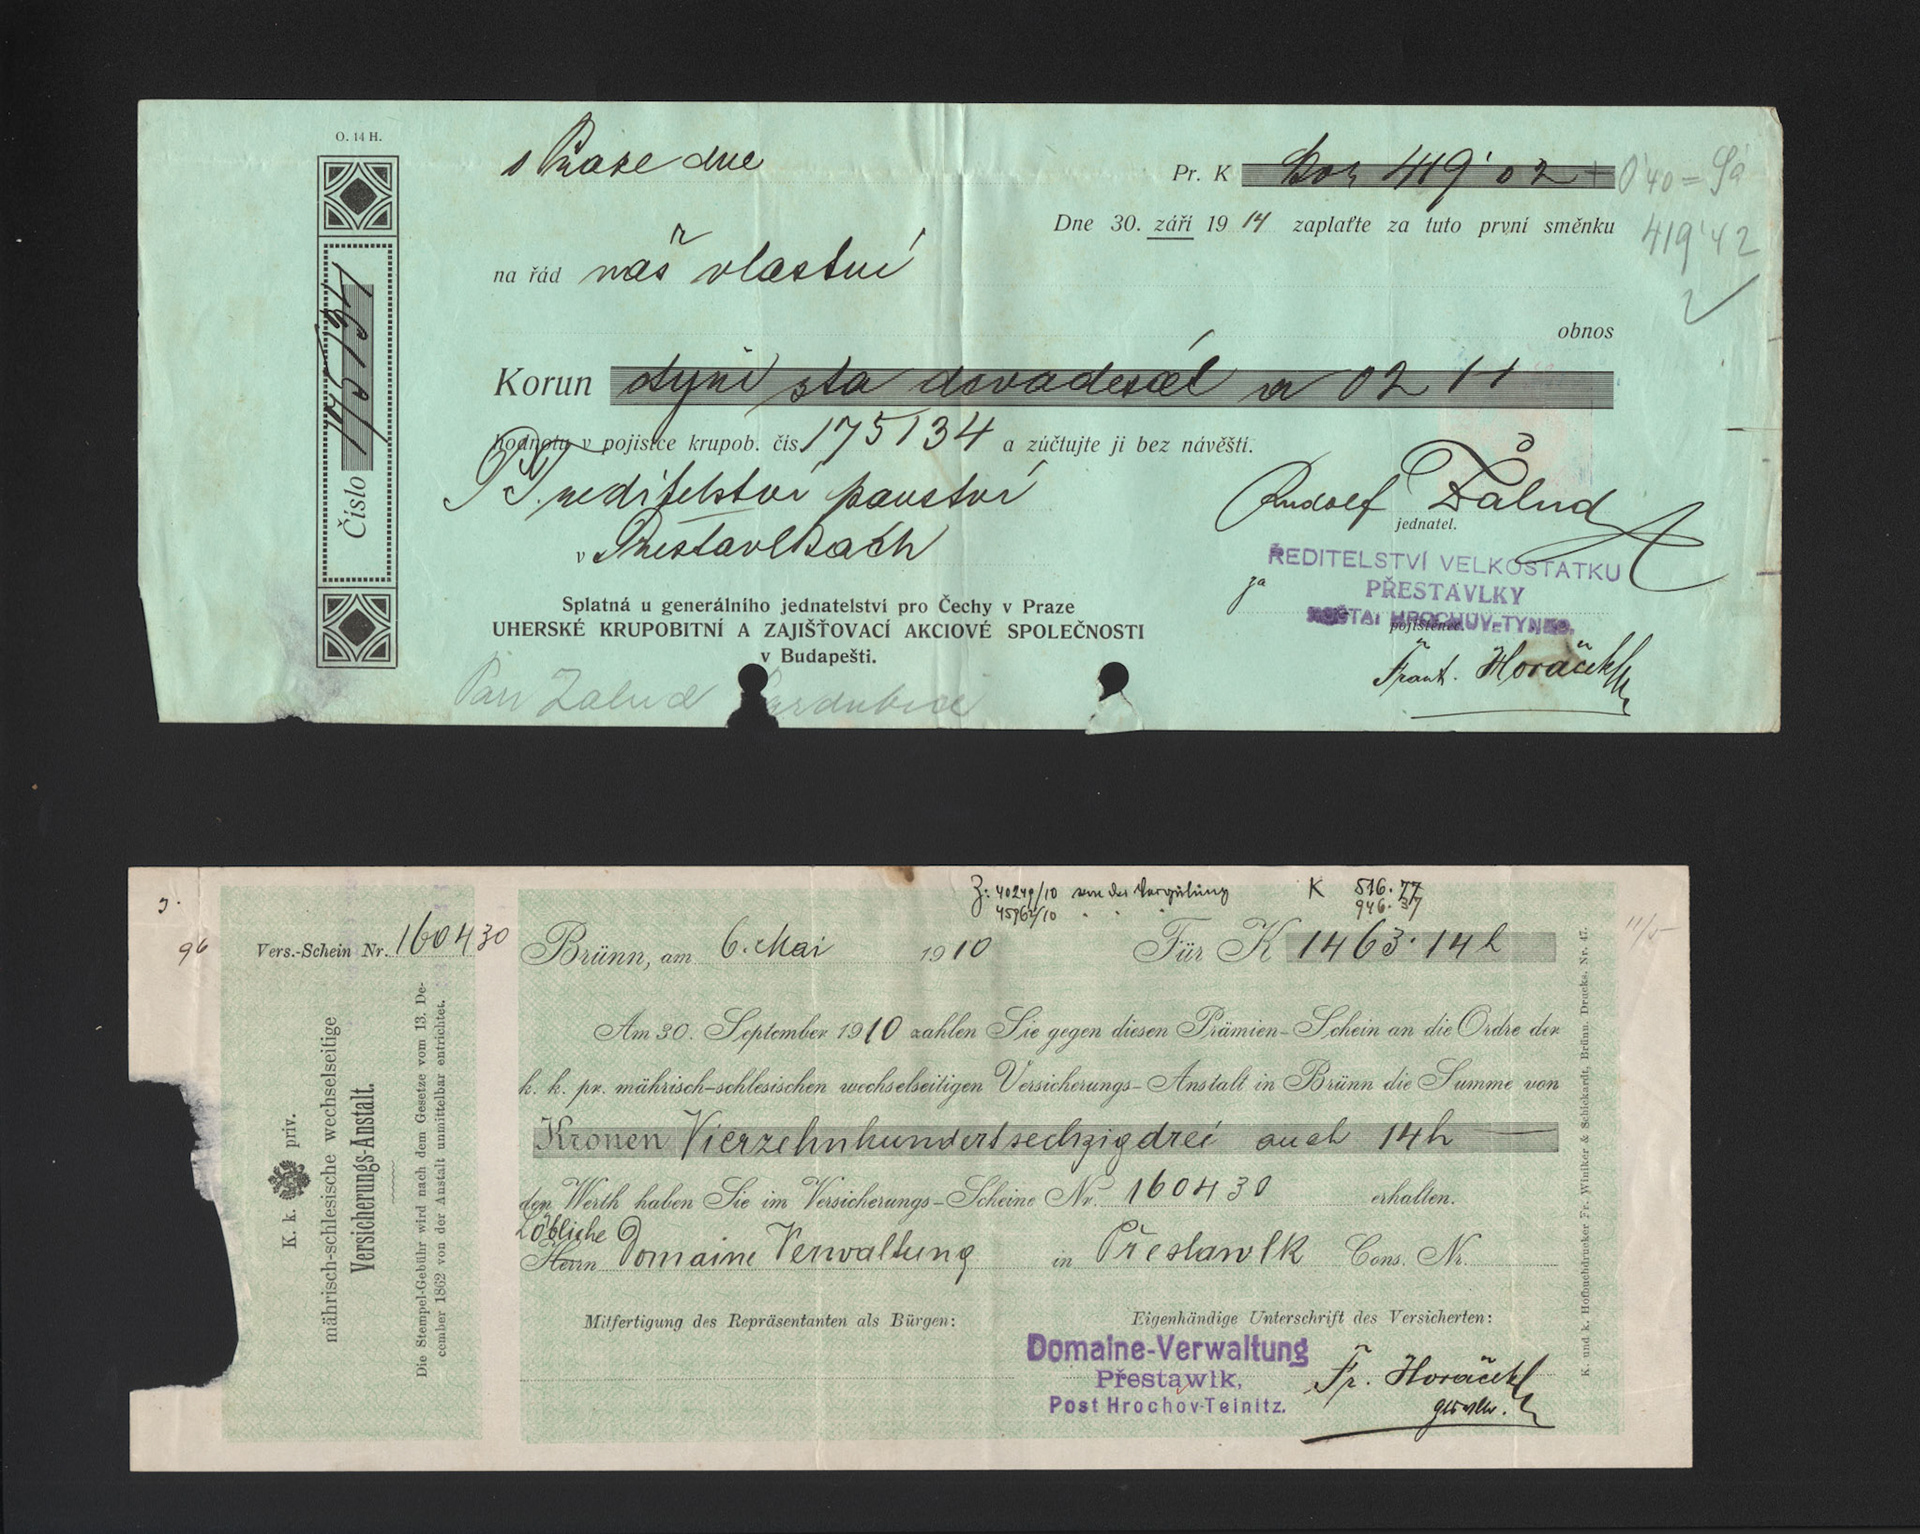 O. 14 H.
v Praze dne
Pr. K Kor 419'02 + 0'40 =
Dne 30. září 1914 zaplaťte za tuto první směnku
419'42
na řád náš vlastní
obnos
Korun čtyři sta dvadesát a 02 H
hodnotu v pojistce krupob. čís. 175134 a zúčtujte ji bez návěští.
Číslo 175134
P. T. ředitelství panství
v Přestavlkách
Rudolf Žalud
jednatel.
ŘEDITELSTVÍ VELKOSTATKU
PŘESTAVLKY
POŠTA: HROCHŮV-TÝNEC.
za
pojištěnec.
Frant. Horáček
Splatná u generálního jednatelství pro Čechy v Praze
UHERSKÉ KRUPOBITNÍ A ZAJIŠŤOVACÍ AKCIOVÉ SPOLEČNOSTI
v Budapešti.
Pan Žalud Pardubice
Z: 40249/10 von der Vergütung K 516.77
45962/10 " " " 946.37
3.
96
11/5
Vers.-Schein Nr. 160430
Brünn, am 6. Mai 1910 Für K 1463.14 h
Am 30. September 1910 zahlen Sie gegen diesen Prämien-Schein an die Ordre der
k. k. pr. mährisch-schlesischen wechselseitigen Versicherungs-Anstalt in Brünn die Summe von
Kronen Vierzehnhundertsechzigdrei auch 14h
den Werth haben Sie im Versicherungs-Scheine Nr. 160430 erhalten.
Löbliche
Herrn Domaine Verwaltung in Přestawlk Cons. Nr.
Mitfertigung des Repräsentanten als Bürgen:
Eigenhändige Unterschrift des Versicherten:
Domaine-Verwaltung
Přestawlk,
Post Hrochov-Teinitz.
Fr. Horáček
K. k. priv.
mährisch-schlesische wechselseitige
Versicherungs-Anstalt.
Die Stempel-Gebühr wird nach dem Gesetze vom 13. De-
cember 1862 von der Anstalt unmittelbar entrichtet.
K. und k. Hofbuchdrucker Fr. Winiker & Schickardt, Brünn. Drucks. Nr. 47.